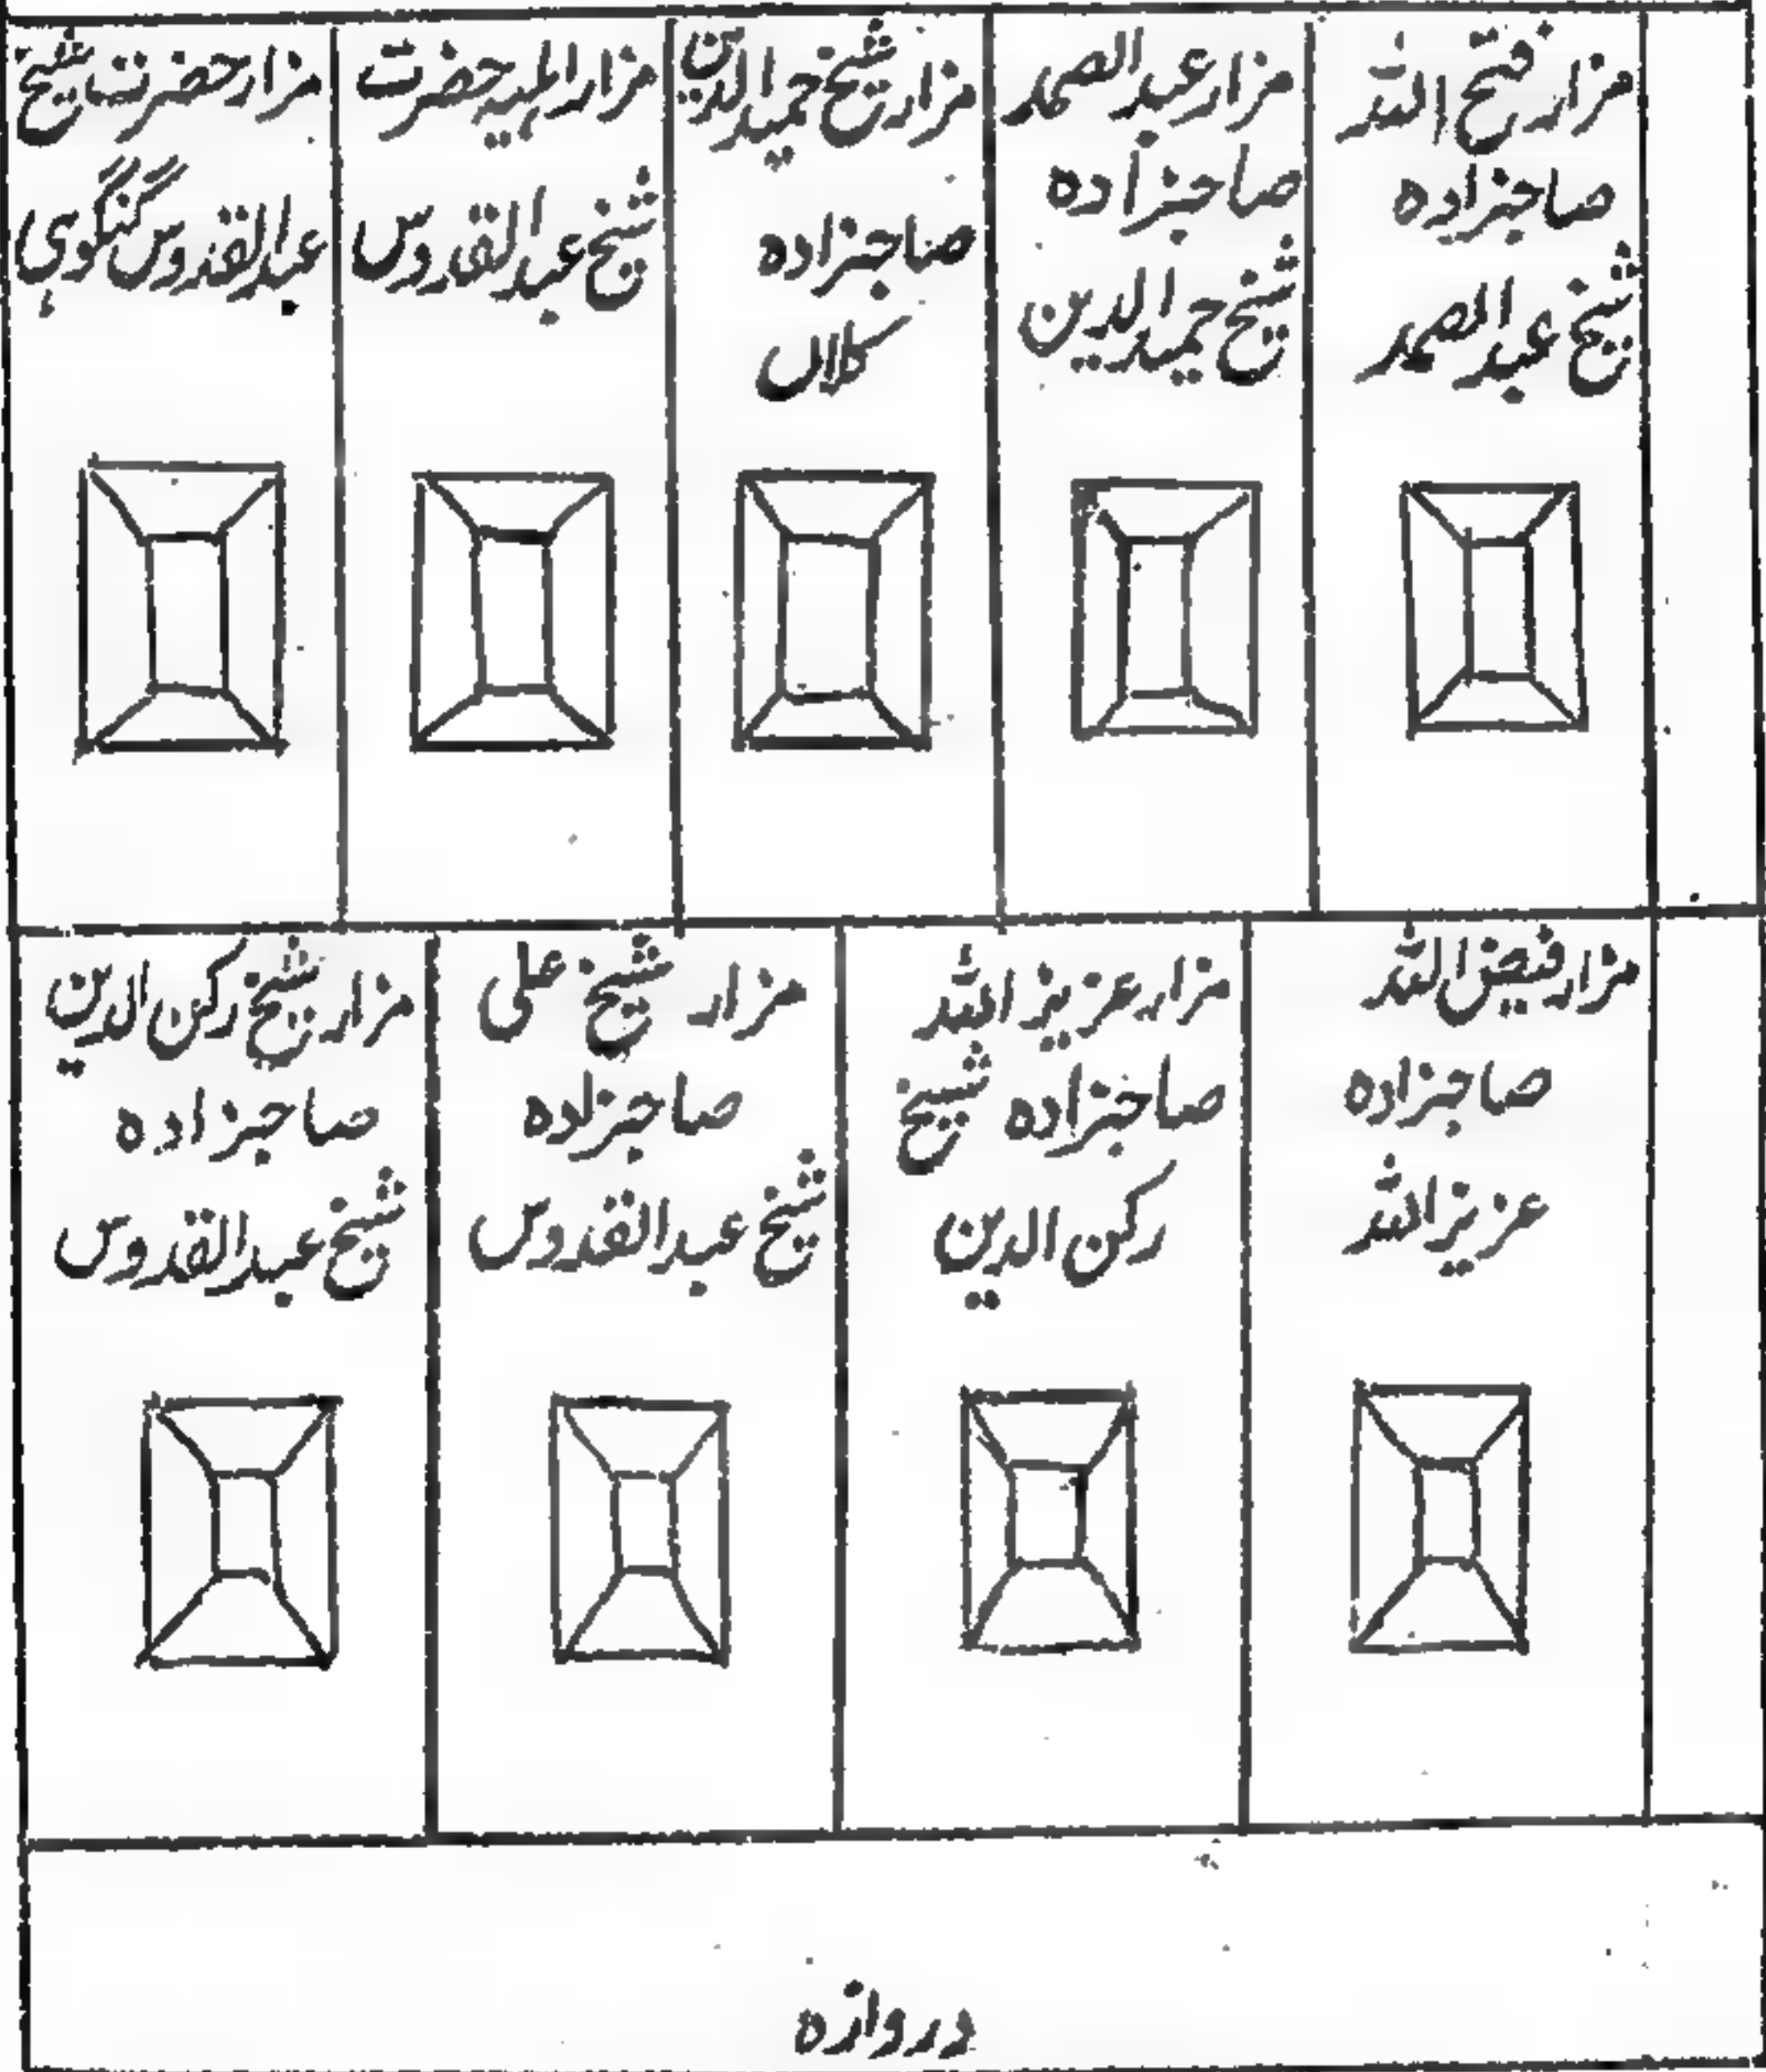 مزار فتح اللہ
صاحبزادہ
شیخ عبدالصمد
مزار عبدالصمد
صاحبزادہ
شیخ حمیدالدین
مزار شیخ حمیدالدین
صاحبزادہ
کلاں
مزار اہلیہ حضرت
شیخ عبدالقدوس
مزار حضرت شیخ
عبدالقدوس گنگوہی
مزار فیض اللہ
صاحبزادہ
عزیز اللہ
مزار عزیز اللہ
صاحبزادہ شیخ
رکن الدین
مزار شیخ علی
صاحبزادہ
شیخ عبدالقدوس
مزار شیخ رکن الدین
صاحبزادہ
شیخ عبدالقدوس
دروازہ